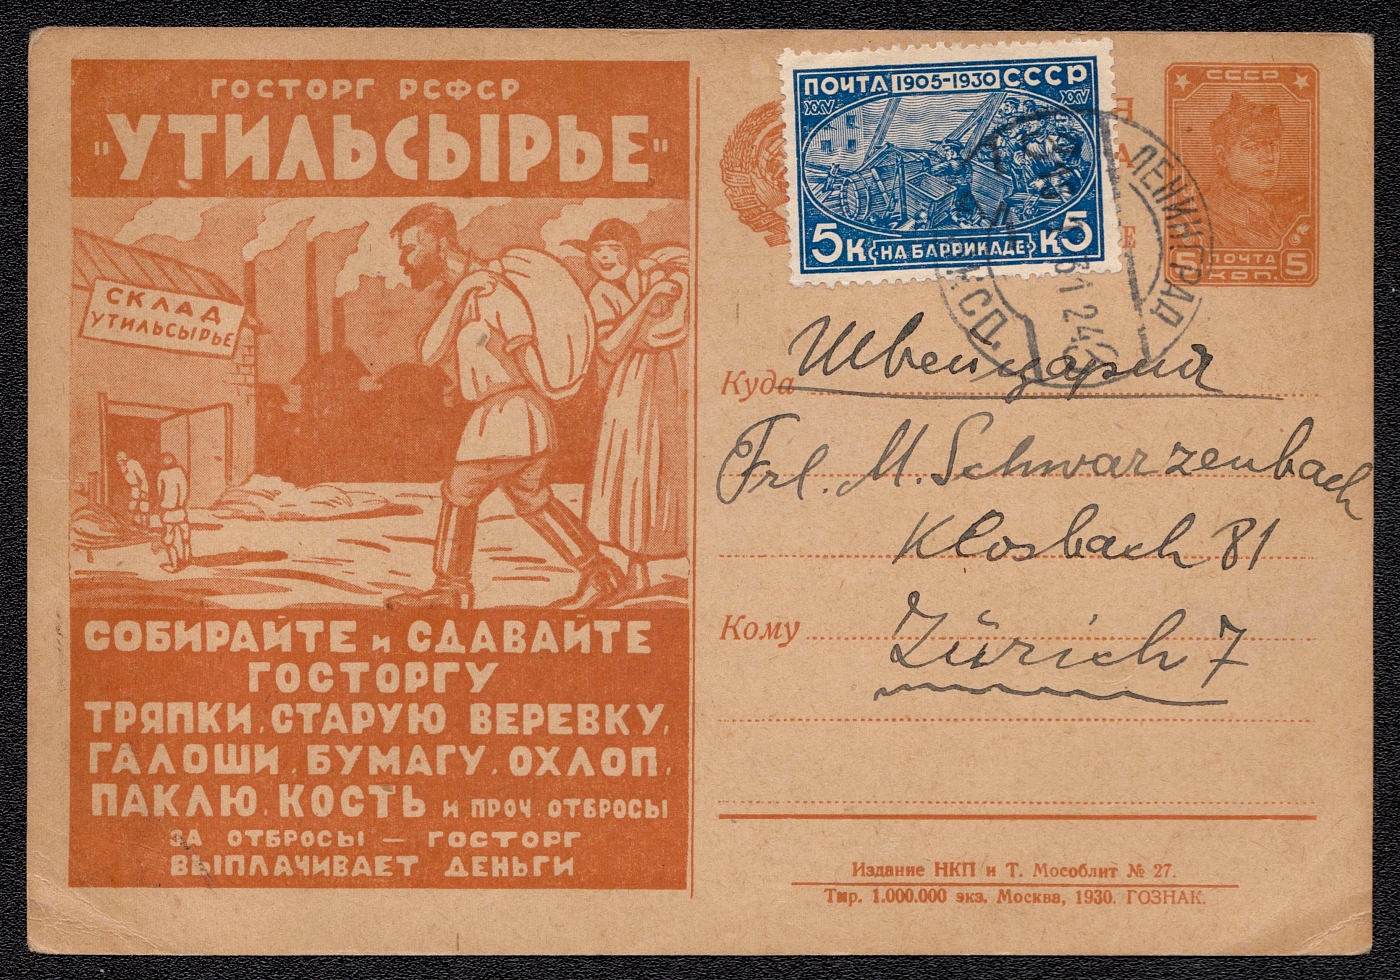 ГОСТОРГ РСФСР
"УТИЛЬСЫРЬЕ"
СКЛАД
УТИЛЬСЫРЬЕ
СОБИРАЙТЕ и СДАВАЙТЕ
ГОСТОРГУ
ТРЯПКИ, СТАРУЮ ВЕРЕВКУ,
ГАЛОШИ, БУМАГУ, ОХЛОП,
ПАКЛЮ, КОСТЬ И ПРОЧ. ОТБРОСЫ
ЗА ОТБРОСЫ — ГОСТОРГ
ВЫПЛАЧИВАЕТ ДЕНЬГИ
ПОЧТА 1905-1930 СССР
XXV XXV
5 К НА БАРРИКАДЕ К 5
СССР
5 ПОЧТА 5
КОП.
ЛЕНИНГРАД
Куда Швейцария
Frl. M. Schwarzenbach
Klosbach 81
Кому Zürich 7
Издание НКП и Т. Мособлит № 27.
Тир. 1.000.000 экз. Москва, 1930. ГОЗНАК.